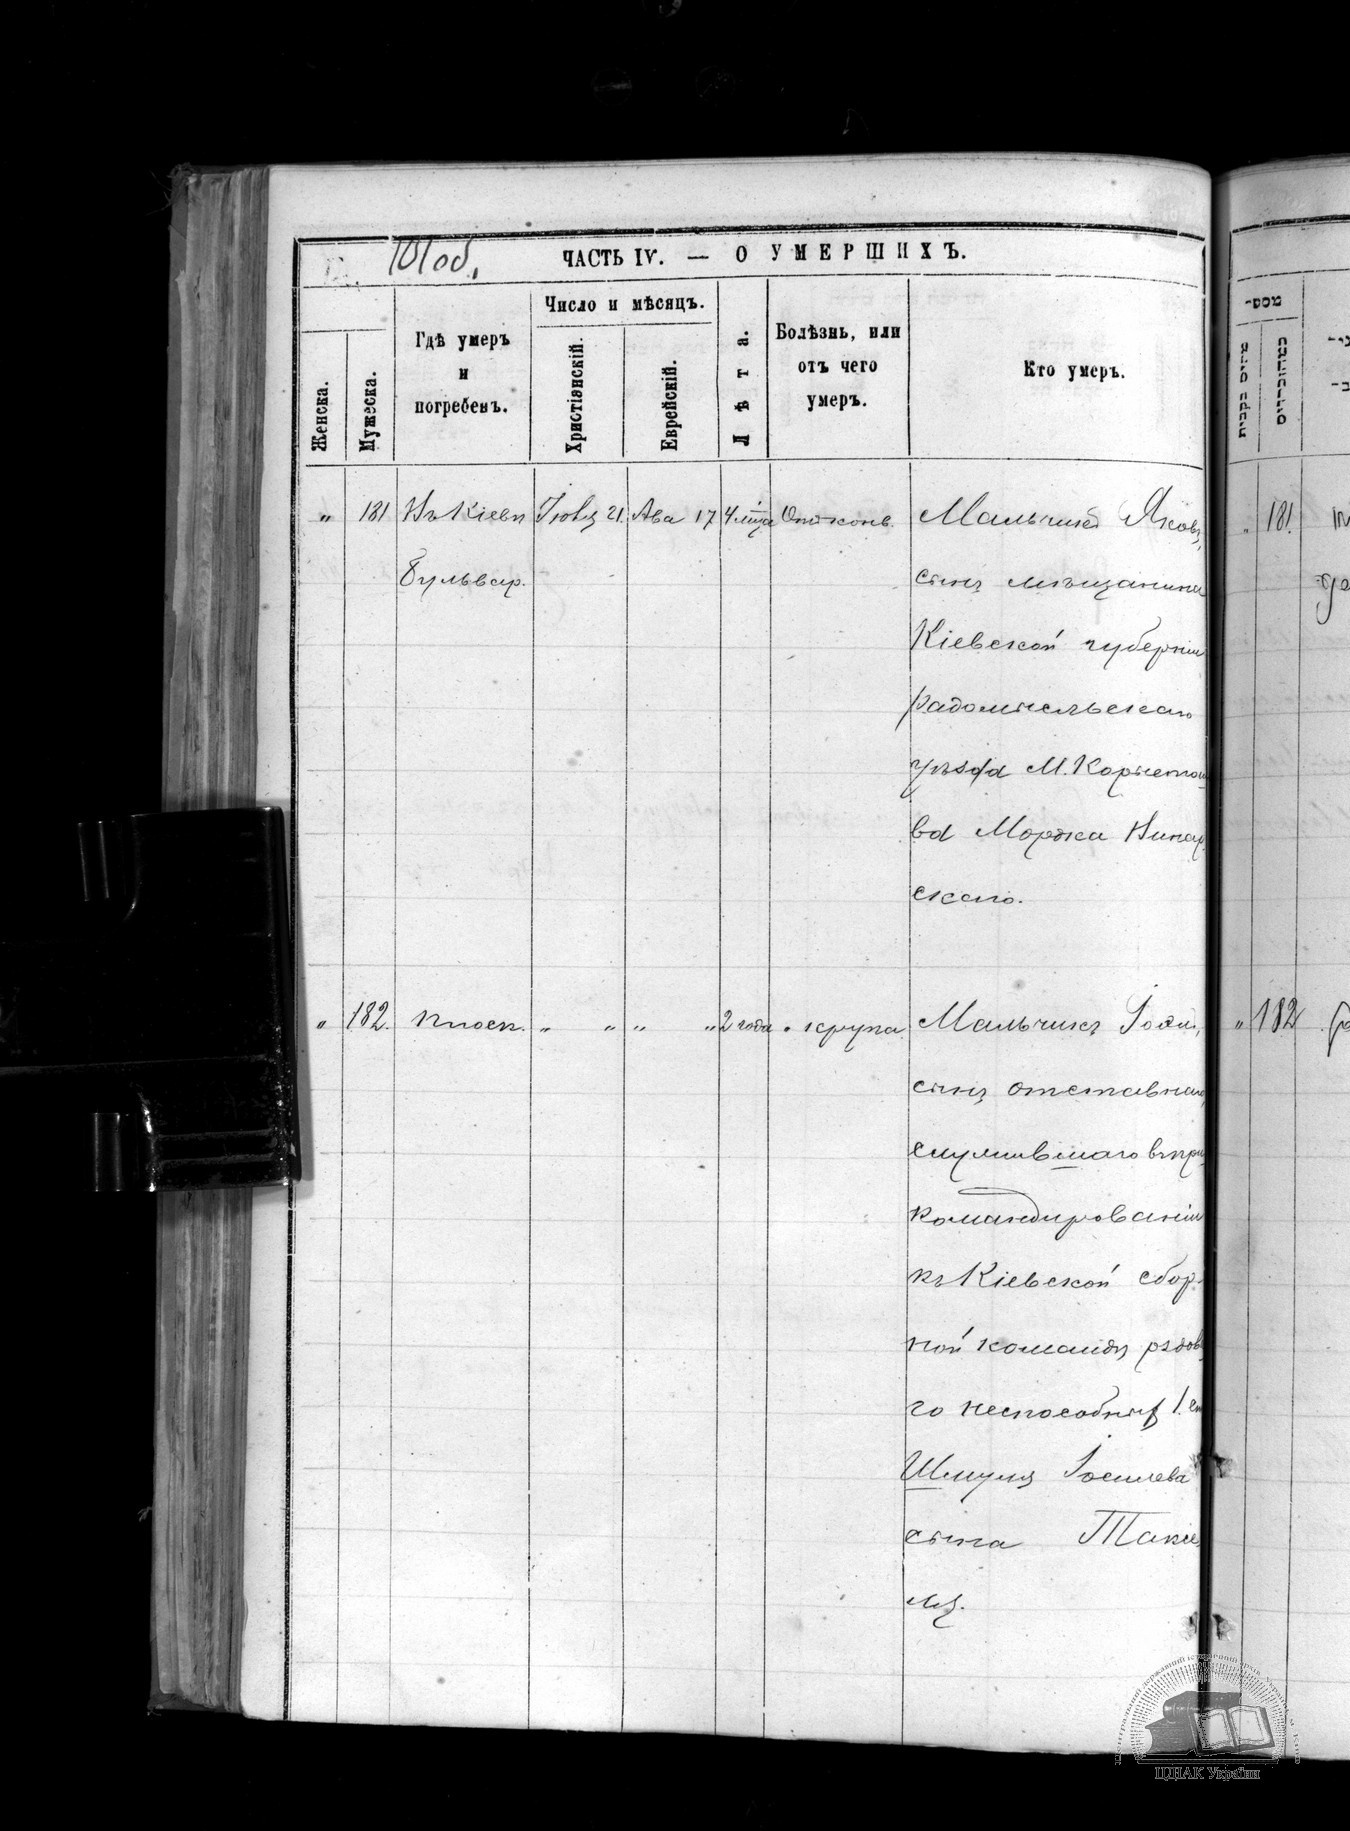 101 об.
ЧАСТЬ IV. — О УМЕРШИХЪ.
Женска.
Мужеска.
Гдѣ умеръ
и
погребенъ.
Число и мѣсяцъ.
Христіянскій.
Еврейскій.
Лѣта.
Болѣзнь, или
отъ чего
умеръ.
Кто умеръ.
" 181 Въ Кіевѣ Іюля 21. Ава 17 4 м-ца Отъ конв. Мальчикъ Яковъ,
Бульвар. сынъ мѣщанина
Кіевской губерніи
радомысльскаго
уѣзда М. Коростыше
ва Мордка
скаго.
" 182. плоск. " " " " 2 года " крупа. Мальчикъ
сынъ отставнаго,
служившаго въ при
командированіи
къ Кіевской сбор
ной команды рядова
го неспособныхъ 1. ст
Шмуля Іосилева
сына
ля.
מספר
181
182
ЦДІАК України